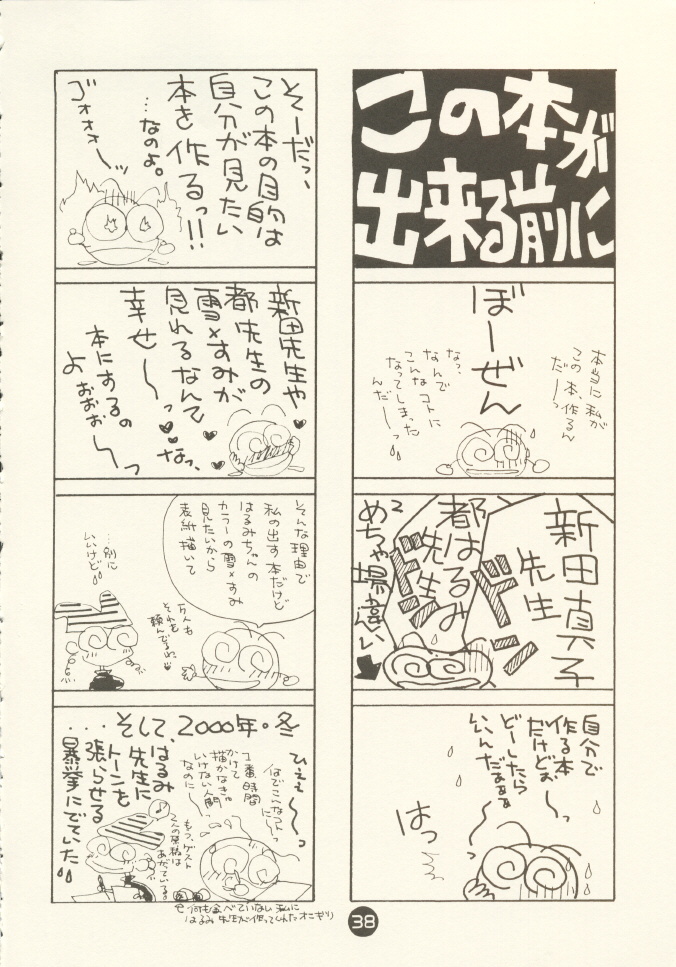 この本が
出来る前に
本当に私が
この本、作るん
だ〜っ
ぼーぜん
なっ、
なんで
こんなコトに
なってしまった
んだ〜っ
新田真子
先生
ドン
都はるみ
先生
ドン
めちゃ場違い
自分で
作る本
だけどぉ〜っ
どーしたら
いいんだぁぁぁ
はっ
そーだっ、
この本の目的は
自分が見たい
本を作るっ!!
…なのよ。
ゴォォォーッ
新田先生や
都先生の
雪×すみが
見れるなんて
幸せ〜っ
なっ、
本にするの
よおぉぉ〜っ
そんな理由で
私の出す本だけど
はるみちゃんの
カラーの雪×すみ
見たいから
表紙描いて
…別に
いいけど
...そして、2000年。冬
ひぇぇ〜っ
何でこんなコトにーっ
1番時間
かけて
描かなきゃ
いけない人間
なのにーっ
もう、ゲスト
2人の原稿は
あがっている。
はるみ
先生に
トーンを
張らせる
暴挙にでていた
何も食べていない私に
はるみ先生が作ってくれたオニギリ
38